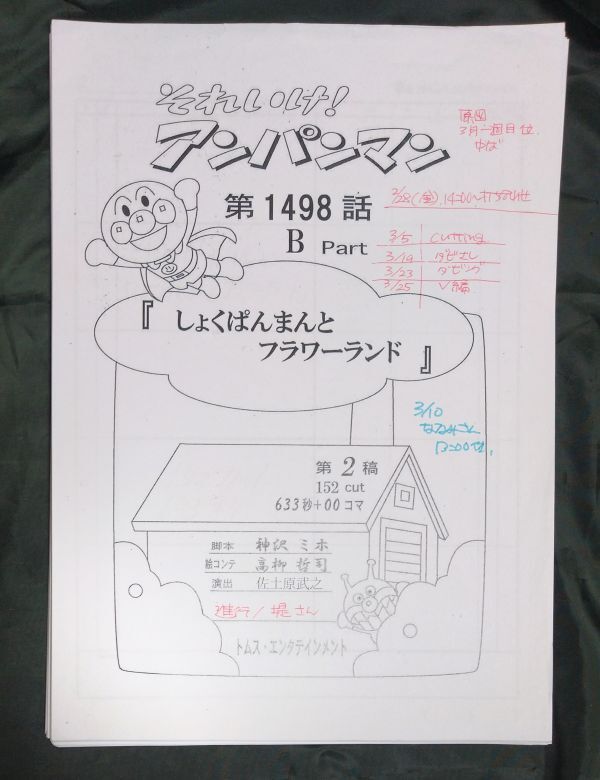 それいけ!
アンパンマン
第1498話
B Part
『しょくぱんまんと
フラワーランド』
原図
3月一週目位
中ば
2/28(金)14:00~打合わせ
3/5 cutting
3/19
3/23 ダビング
3/25 V編
3/10
第2稿
152 cut
633秒+00コマ
脚本 神沢 ミホ
絵コンテ 高柳 哲司
演出 佐土原武之
進行/堤さん
トムス・エンタテインメント